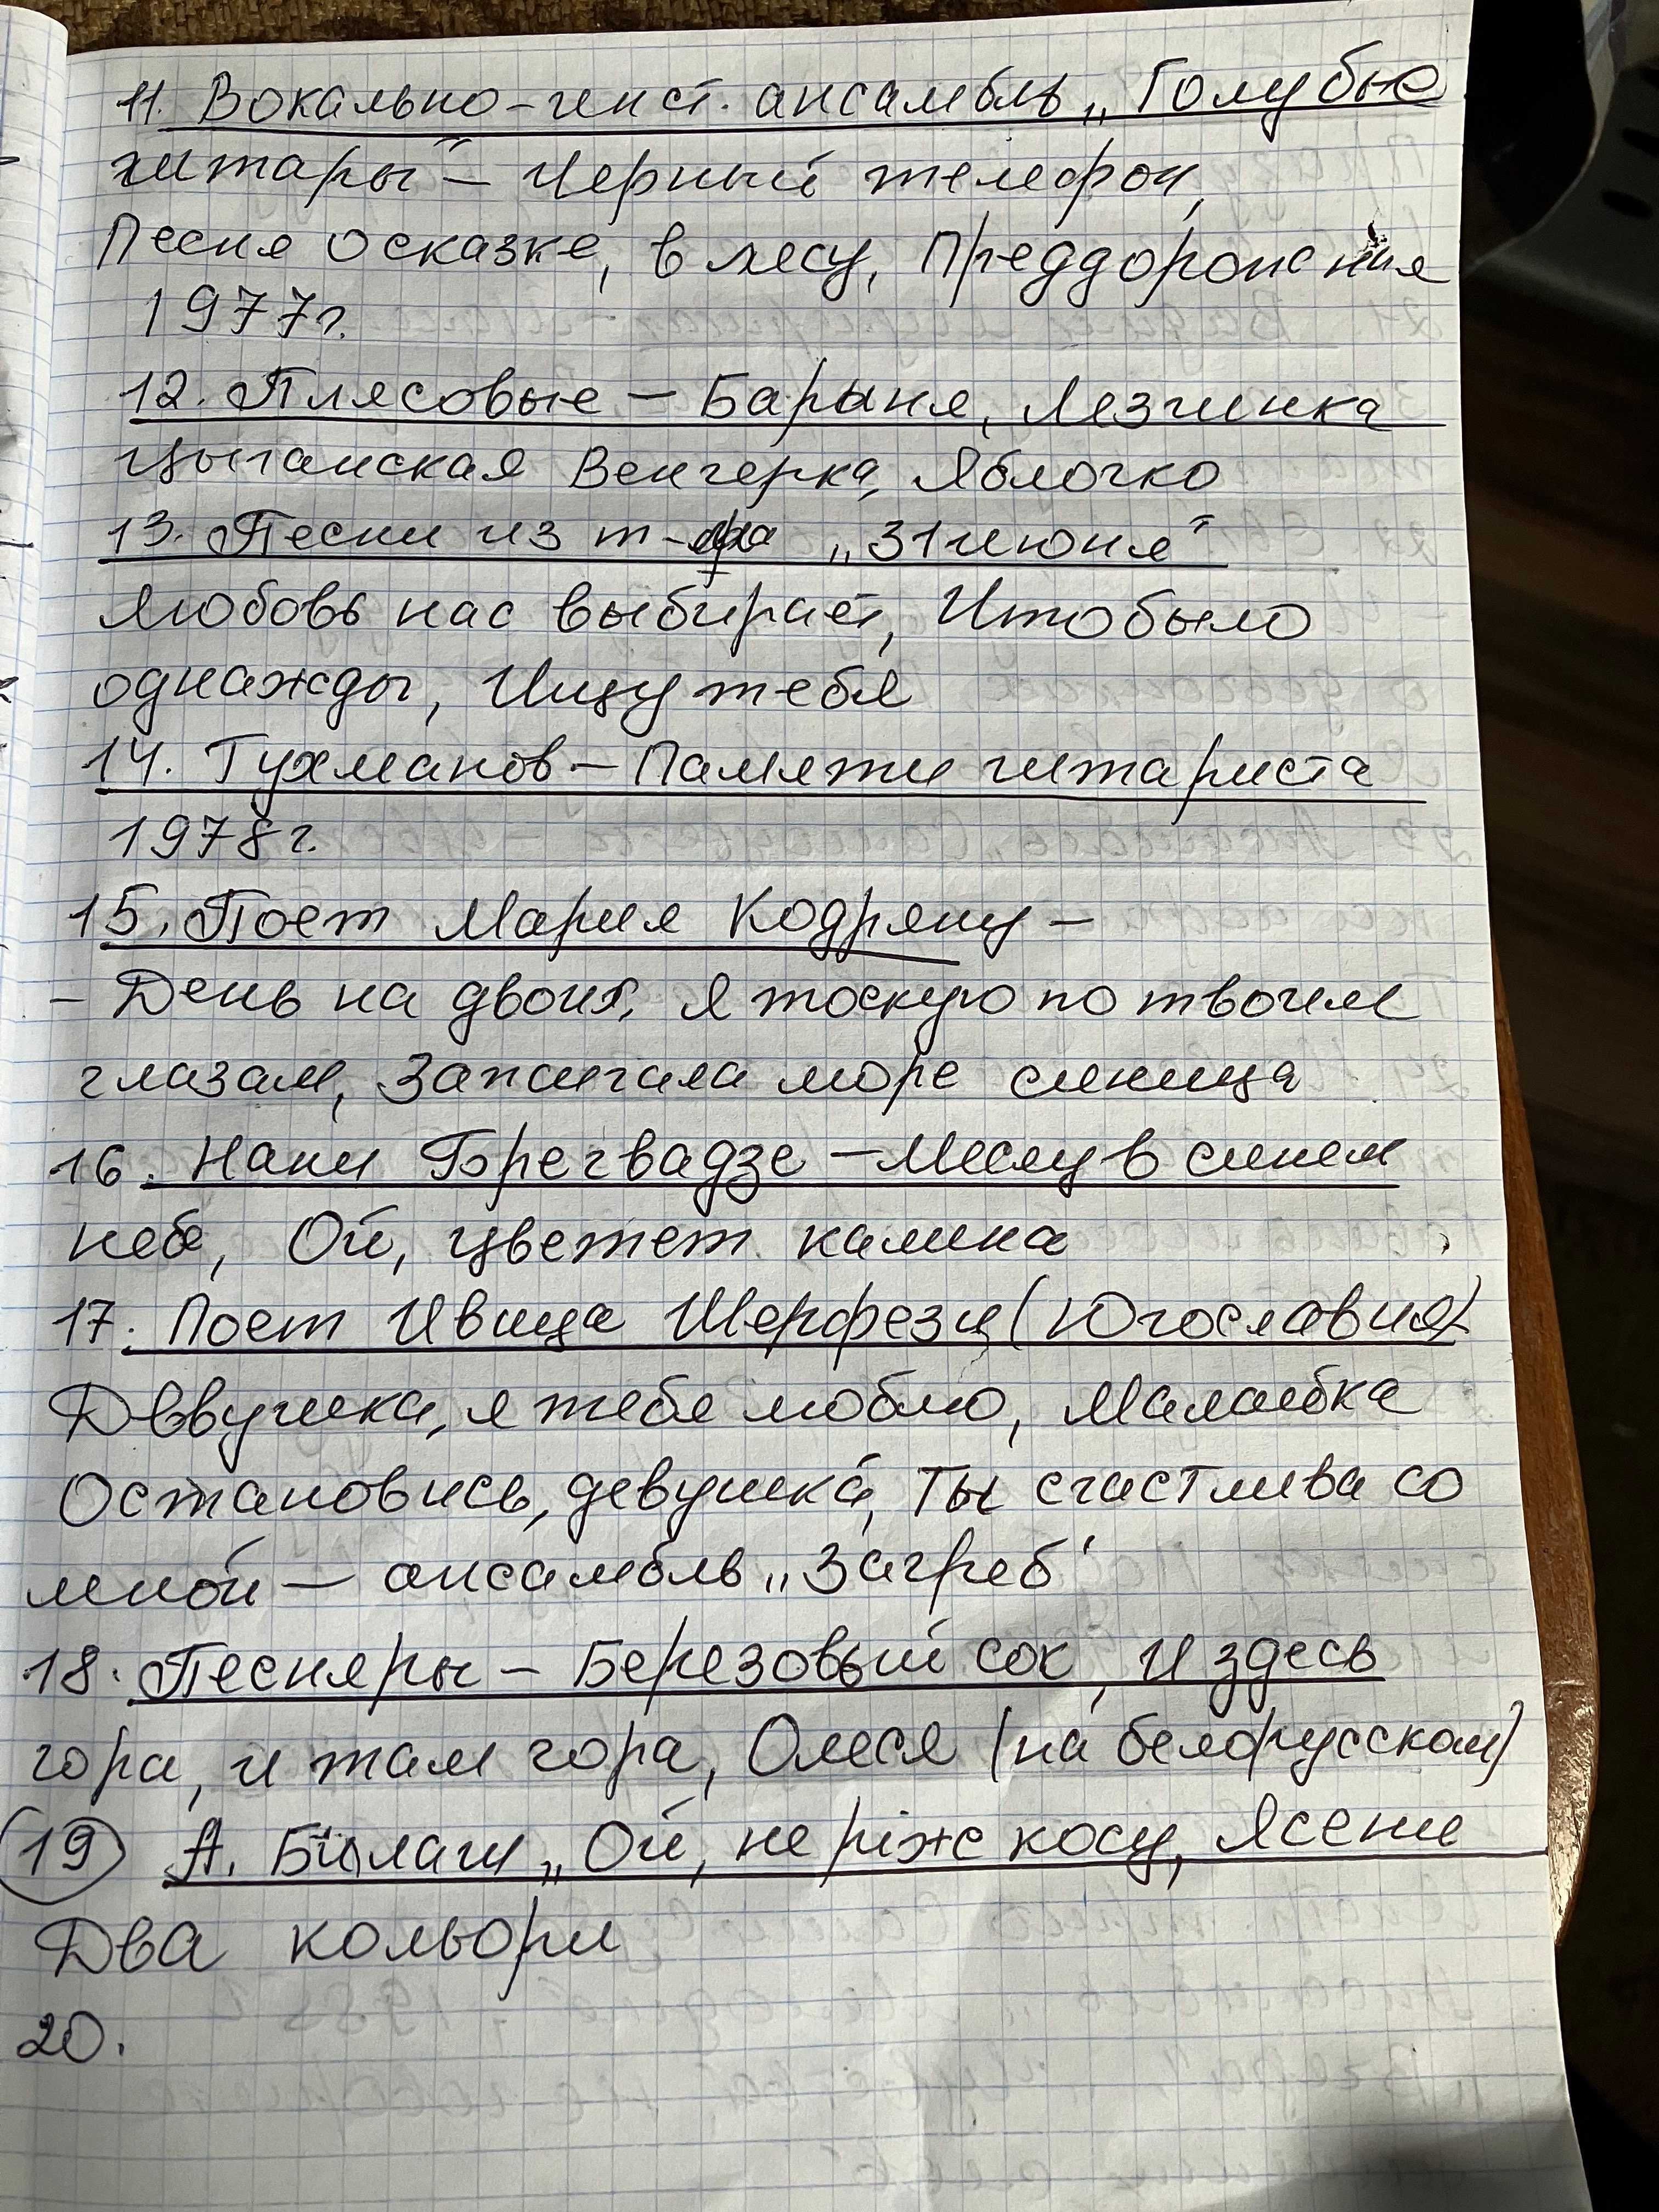 11. Вокально-инст. ансамбль „Голубые
гитары" – Черный телефон,
Песня о сказке, в лесу, Преддорожная
1977г.
12. Плясовые – Барыня, Лезгинка
цыганская Венгерка, Яблочко
13. Песни из т-фа „31 июня"
Любовь нас выбирает, Что было
однажды, Ищу тебя
14. Тухманов – Памяти гитариста
1978г.
15. Поет Мария Кодряну –
– День на двоих, я тоскую по твоим
глазам, Зажигала море синица
16. Нани Брегвадзе – Месяц в синем
небе, Ой, цветет калина
17. Поет Ивица Шерфези (Югославия)
Девушка, я тебя люблю, Малайка
Остановись, девушка, Ты счастлива со
мной – ансамбль „Загреб"
18. Песняры – Березовый сок, и здесь
гора, и там гора, Олеся (на белорусском)
19 А. Билаш „Ой, не ріж косу, Ясени
Два кольори
20.